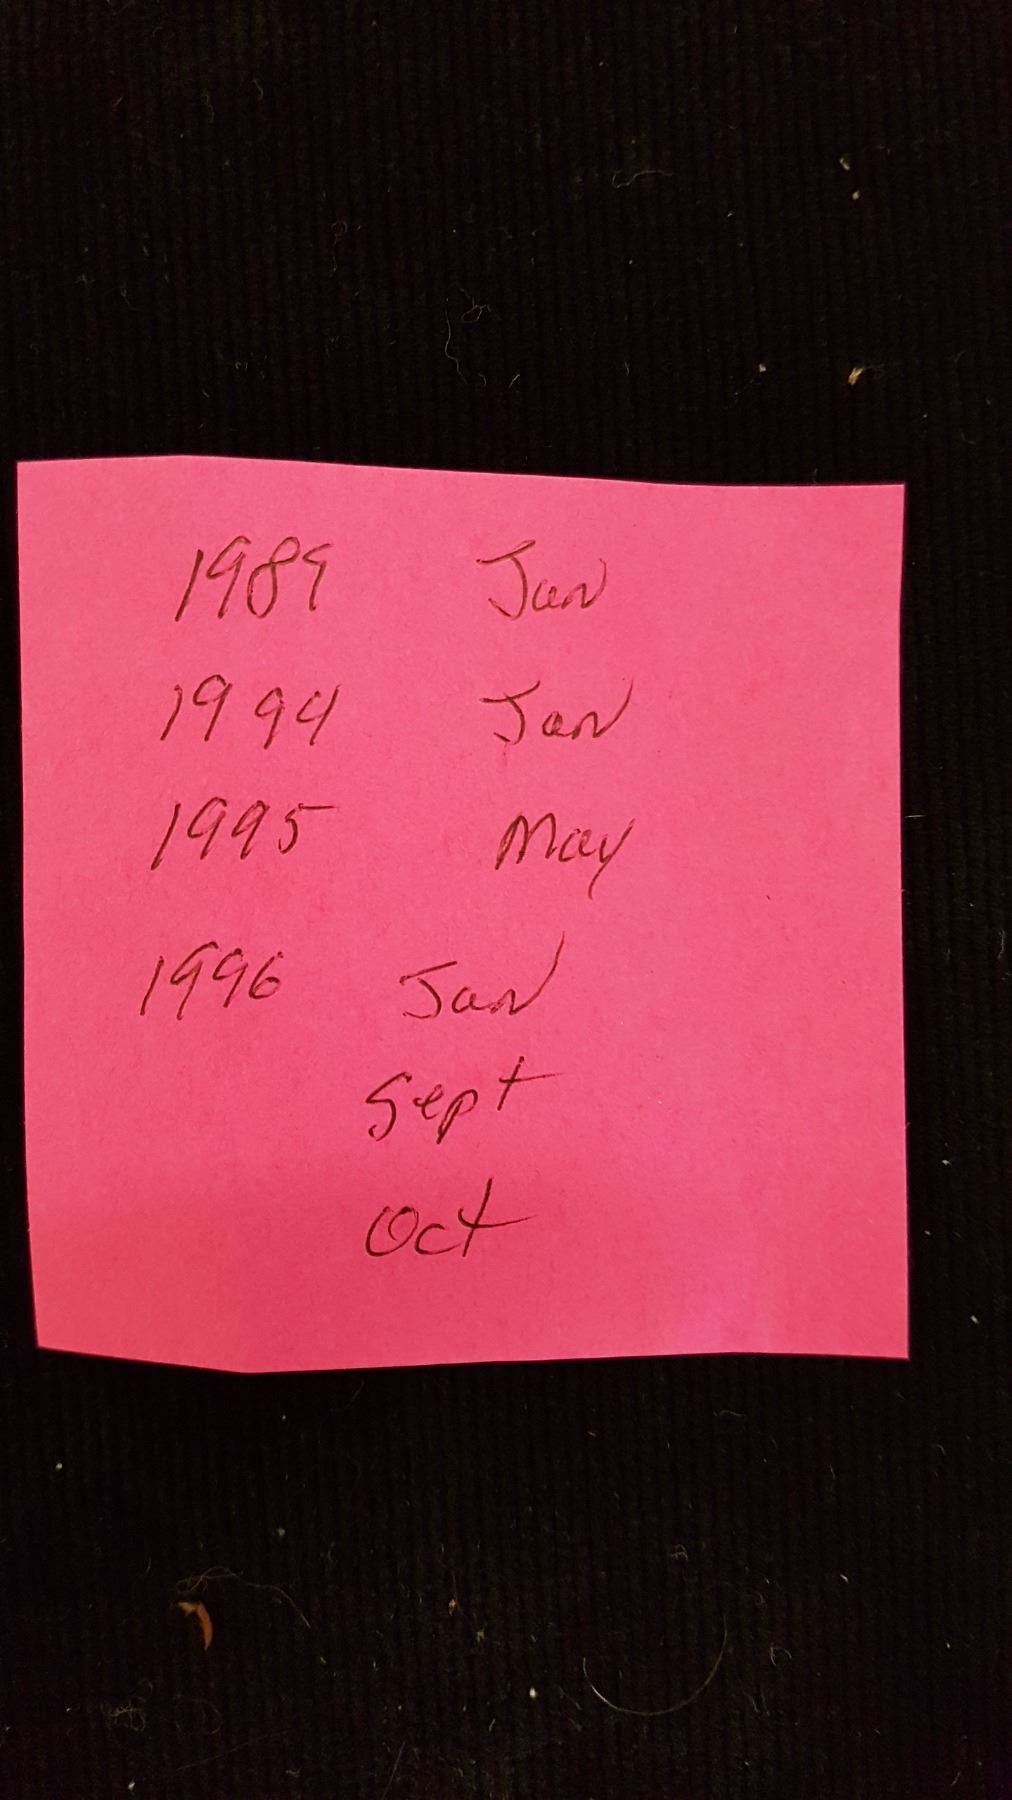 1989 Jan
1994 Jan
1995 May
1996 Jan
Sept
Oct